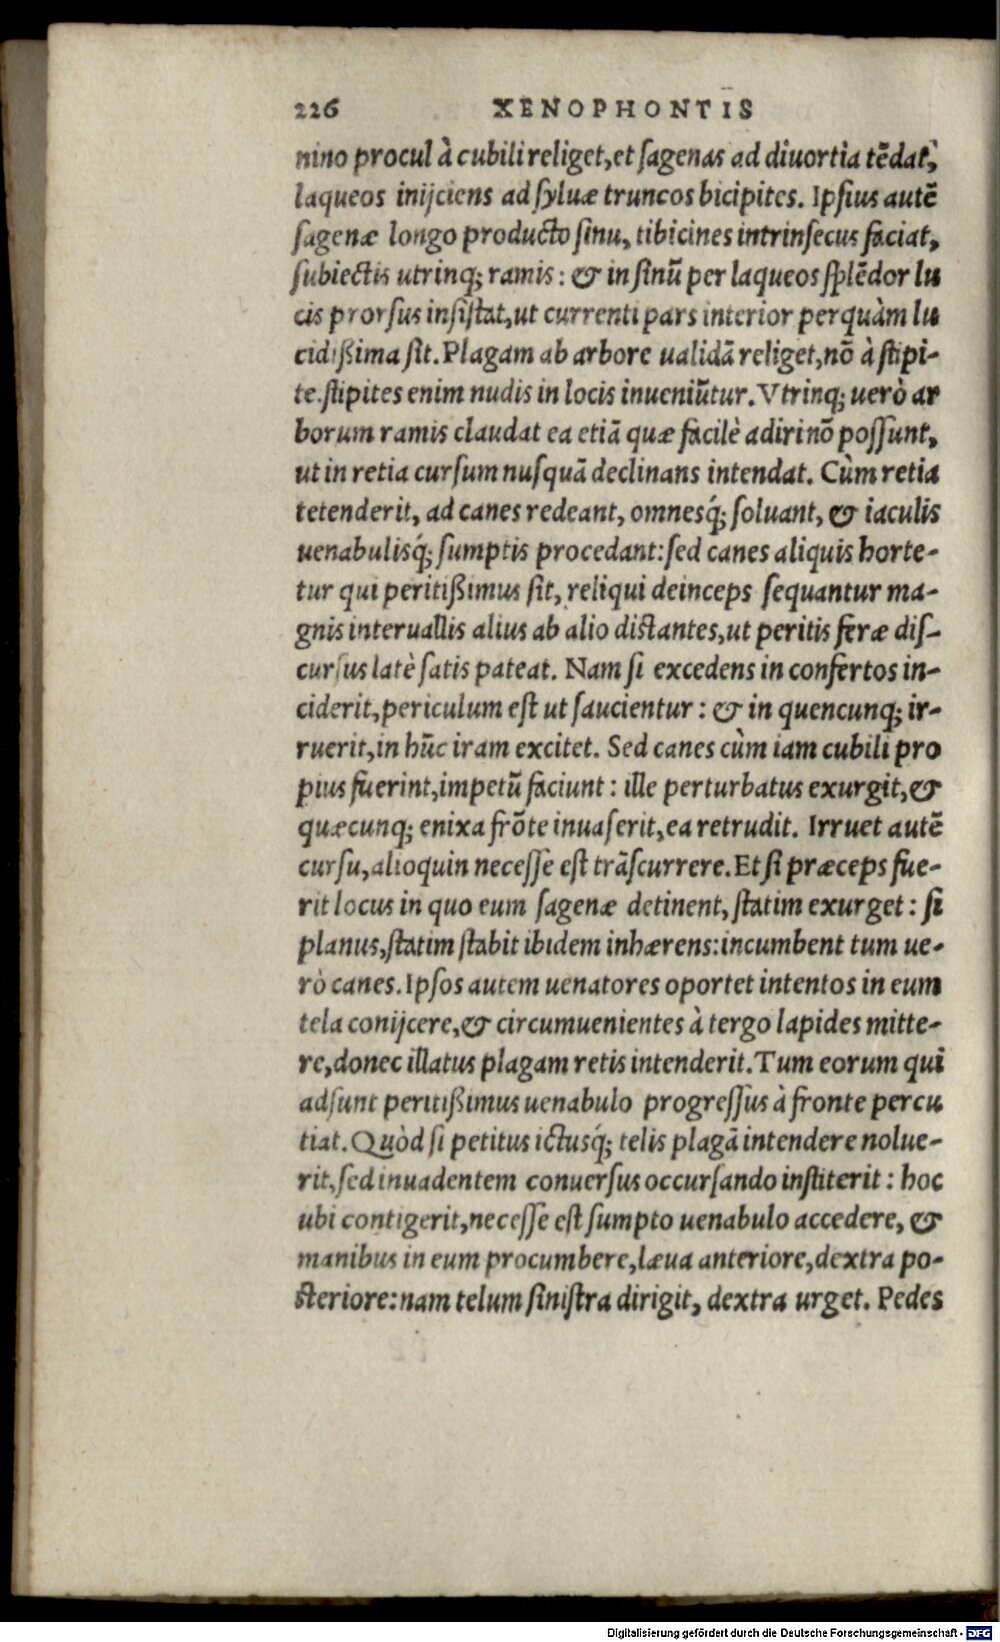 226 XENOPHONTIS
nino procul à cubili religet, et ſagenas ad diuortia tẽdat,
laqueos inijciens ad ſyluæ truncos bicipites. Ipſius autẽ
ſagenæ longo producto ſinu, tibicines intrinſecus faciat,
ſubiectis utrinq; ramis: & in ſinũ per laqueos ſplẽdor lu
cis prorſus inſiſtat, ut currenti pars interior perquàm lu
cidißima ſit. Plagam ab arbore ualidã religet, nõ à ſtipi-
te. ſtipites enim nudis in locis inueniũtur. Vtrinq; uerò ar
borum ramis claudat ea etiã quæ facilè adiri nõ poſſunt,
ut in retia curſum nuſquã declinans intendat. Cùm retia
tetenderit, ad canes redeant, omnesq́; ſoluant, & iaculis
uenabulisq́; ſumptis procedant: ſed canes aliquis horte-
tur qui peritißimus ſit, reliqui deinceps ſequantur ma-
gnis interuallis alius ab alio diſtantes, ut peritis feræ diſ-
curſus latè ſatis pateat. Nam ſi excedens in confertos in-
ciderit, periculum eſt ut ſaucientur: & in quencunq; ir-
ruerit, in hũc iram excitet. Sed canes cùm iam cubili pro
pius fuerint, impetũ faciunt: ille perturbatus exurgit, &
quæcunq; enixa frõte inuaſerit, ea retrudit. Irruet autẽ
curſu, alioquin neceſſe eſt trãſcurrere. Et ſi præceps fue-
rit locus in quo eum ſagenæ detinent, ſtatim exurget: ſi
planus, ſtatim ſtabit ibidem inhærens: incumbent tum ue-
rò canes. Ipſos autem uenatores oportet intentos in eum
tela conijcere, & circumuenientes à tergo lapides mitte-
re, donec illatus plagam retis intenderit. Tum eorum qui
adſunt peritißimus uenabulo progreſſus à fronte percu
tiat. Quòd ſi petitus ictusq́; telis plagã intendere nolue-
rit, ſed inuadentem conuerſus occurſando inſtiterit: hoc
ubi contigerit, neceſſe eſt ſumpto uenabulo accedere, &
manibus in eum procumbere, læua anteriore, dextra po-
ſteriore: nam telum ſiniſtra dirigit, dextra urget. Pedes
Digitalisierung gefördert durch die Deutsche Forschungsgemeinschaft - DFG